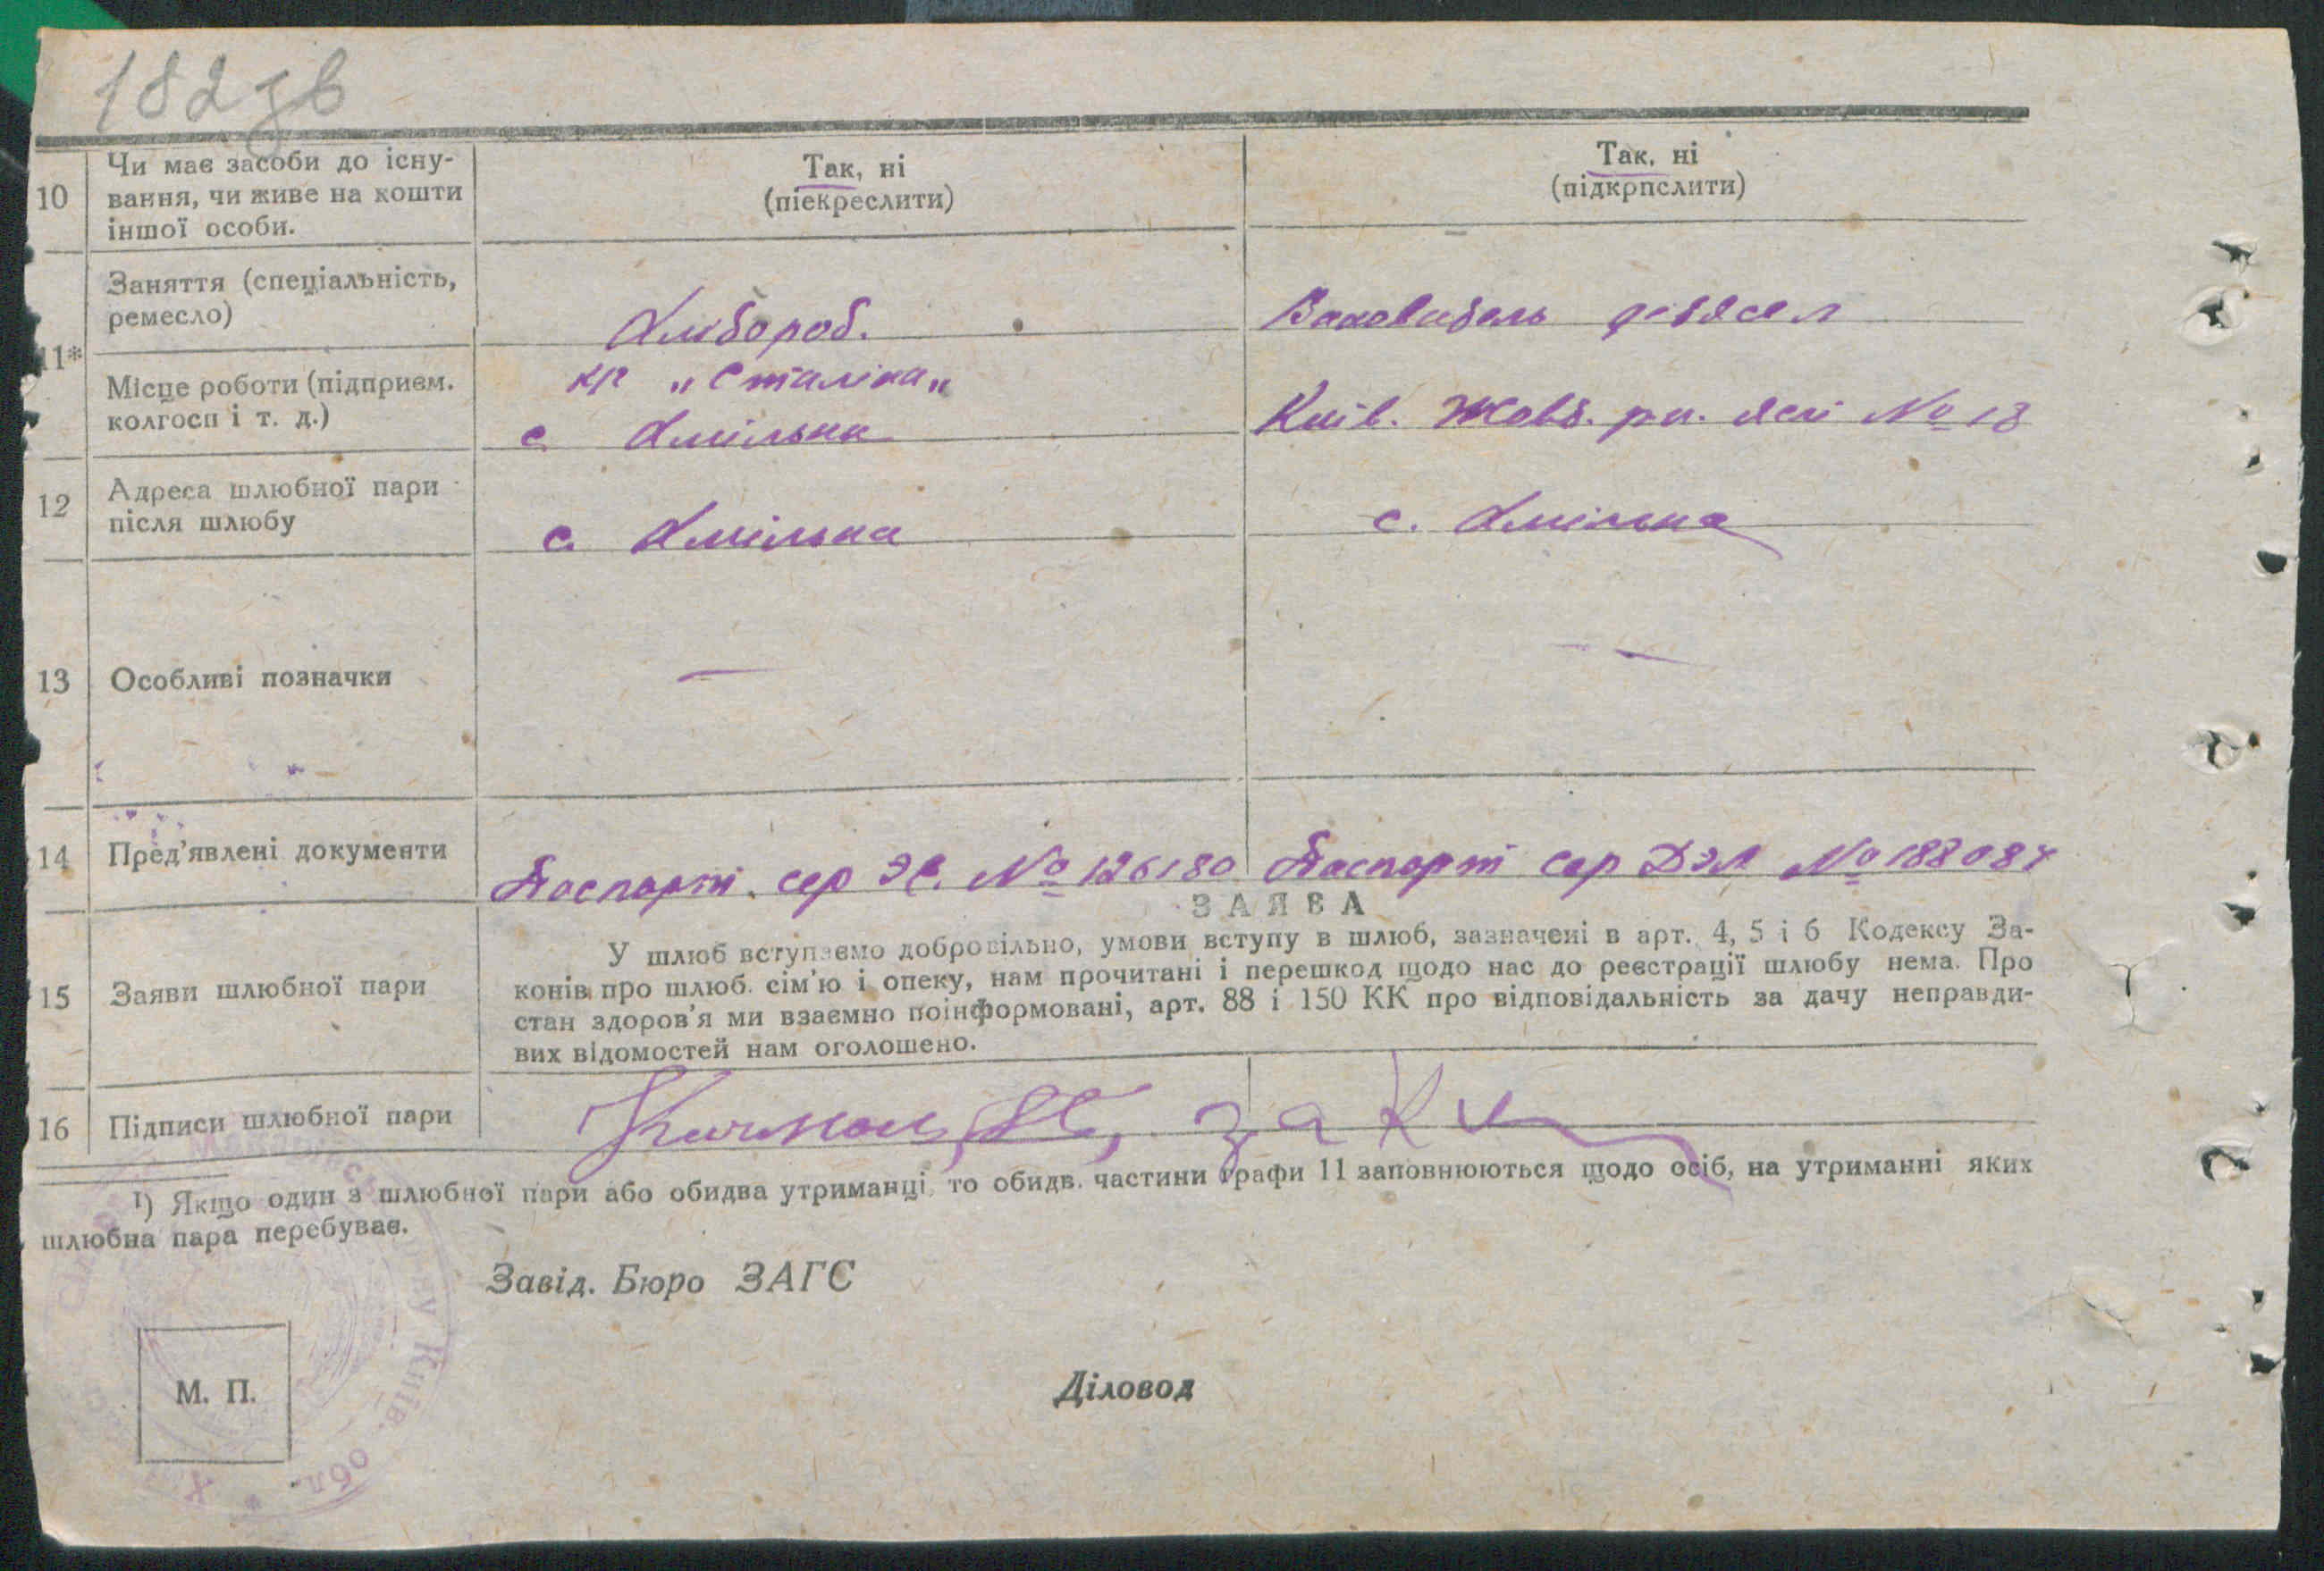 182 зв
10
Чи має засоби до існу-
вання, чи живе на кошти
іншої особи.
Так, ні
(піекреслити)
Так, ні
(підкрпслити)
11*
Заняття (спеціальність,
ремесло)
Хлібороб.
Вихователь дитясел
Місце роботи (підприєм.
колгосп і т. д.)
кг „Сталіна„
с. Хмільна
Київ. Жовт. рн. Яслі № 18
12
Адреса шлюбної пари
після шлюбу
с. Хмільна
с. Хмільна
13
Особливі позначки
—
—
14
Пред'явлені документи
Паспорт. сер ЭС. № 126180
Паспорт сер ДЭЛ № 188084
15
Заяви шлюбної пари
ЗАЯВА
У шлюб вступаємо добровільно, умови вступу в шлюб, зазначені в арт. 4, 5 і 6 Кодексу За-
конів про шлюб. сім'ю і опеку, нам прочитані і перешкод щодо нас до реєстрації шлюбу нема. Про
стан здоров'я ми взаємно поінформовані, арт. 88 і 150 КК про відповідальність за дачу неправди-
вих відомостей нам оголошено.
16
Підписи шлюбної пари
1) Якщо один з шлюбної пари або обидва утриманці, то обидв. частини графи 11 заповнюються щодо осіб, на утриманні яких
шлюбна пара перебуває.
Завід. Бюро ЗАГС
М. П.
Діловод
Київ. обл.